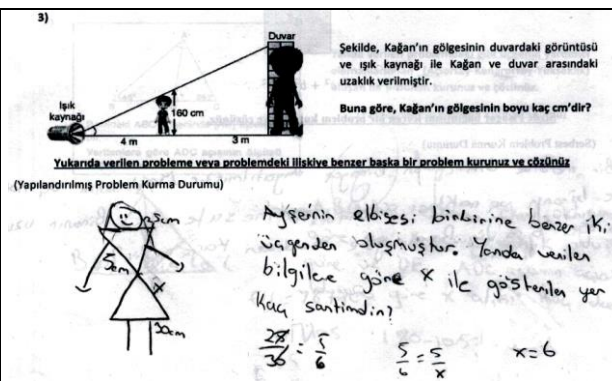 3)
Duvar
Işık
kaynağı
160 cm
4 m
3 m
Şekilde, Kağan'ın gölgesinin duvardaki görüntüsü
ve ışık kaynağı ile Kağan ve duvar arasındaki
uzaklık verilmiştir.
Buna göre, Kağan'ın gölgesinin boyu kaç cm'dir?
Yukarıda verilen probleme veya problemdeki ilişkiye benzer başka bir problem kurunuz ve çözünüz
(Yapılandırılmış Problem Kurma Durumu)
25cm
5cm
x
30cm
Ayşe'nin elbisesi birbirine benzer iki
üçgenden oluşmuştur. Yanda verilen
bilgilere göre x ile gösterilen yer
Kaç santimdir?
25/30 = 5/6
5/6 = 5/x
x=6